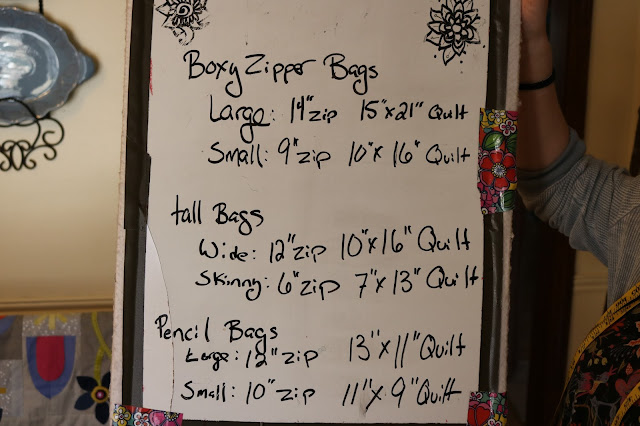 Boxy Zipper Bags
Large: 14" zip 15"x21" Quilt
Small: 9" zip 10"x 16" Quilt
tall Bags
Wide: 12" zip 10"x16" Quilt
Skinny: 6" zip 7"x 13" Quilt
Pencil Bags
Large: 12" zip 13"x11" Quilt
Small: 10" zip 11"x 9" Quilt